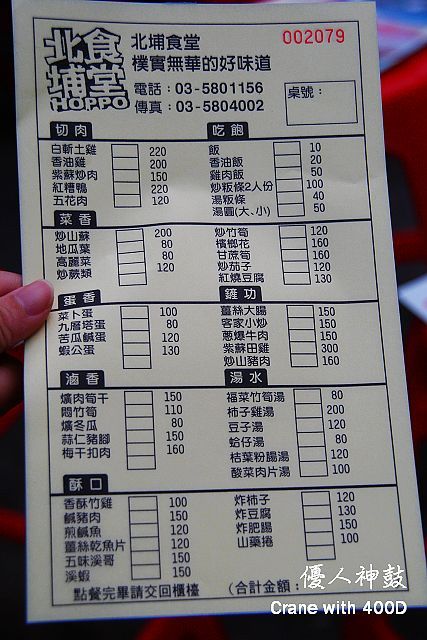 北埔食堂
HOPPO
北埔食堂
002079
樸實無華的好味道
電話：03-5801156
傳真：03-5804002
桌號：
切肉
白斬土雞 220
香油雞 200
紫蘇炒肉 150
紅糟鴨 220
五花肉 120
吃飽
飯 10
香油飯 20
雞肉飯 50
炒粄條2人份 100
湯粄條 40
湯圓(大、小) 50
菜香
炒山蘇 200
地瓜葉 80
高麗菜 80
炒蕨類 120
炒竹筍 120
檳榔花 160
甘蔗筍 160
炒茄子 120
紅燒豆腐 130
蛋香
菜卜蛋 100
九層塔蛋 80
苦瓜鹹蛋 120
蝦公蛋 130
鑊功
薑絲大腸 150
客家小炒 150
蔥爆牛肉 150
紫蘇田雞 300
炒山豬肉 160
滷香
爌肉筍干 150
悶竹筍 110
爌冬瓜 80
蒜仁豬腳 150
梅干扣肉 160
湯水
福菜竹筍湯 80
柿子雞湯 200
豆子湯 120
蛤仔湯 80
桔葉粉腸湯 120
酸菜肉片湯 100
酥口
香酥竹雞 100
鹹豬肉 150
煎鹹魚 120
薑絲乾魚片 150
五味溪哥 150
溪蝦 150
炸柿子 120
炸豆腐 130
炸肥腸 150
山藥捲 100
點餐完畢請交回櫃檯
(合計金額：
優人神鼓
Crane with 400D